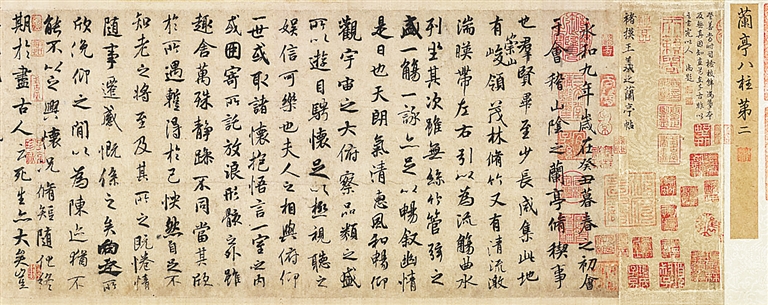 蘭亭八柱第二
褚摸王羲之蘭亭帖
永和九年歲在癸丑暮春之初會
于會稽山陰之蘭亭脩稧事
也羣賢畢至少長咸集此地
有崇山峻領茂林脩竹又有清流激
湍暎帶左右引以為流觴曲水
列坐其次雖無絲竹管弦之
盛一觴一詠亦足以暢敘幽情
是日也天朗氣清惠風和暢仰
觀宇宙之大俯察品類之盛
所以遊目騁懷足以極視聽之
娛信可樂也夫人之相與俯仰
一世或取諸懷抱悟言一室之內
或因寄所託放浪形骸之外雖
趣舍萬殊靜躁不同當其欣
於所遇蹔得於己怏然自足不
知老之將至及其所之既惓情
隨事遷感慨係之矣向之所
欣俛仰之間以為陳迹猶不
能不以之興懷況脩短隨化終
期於盡古人云死生亦大矣豈